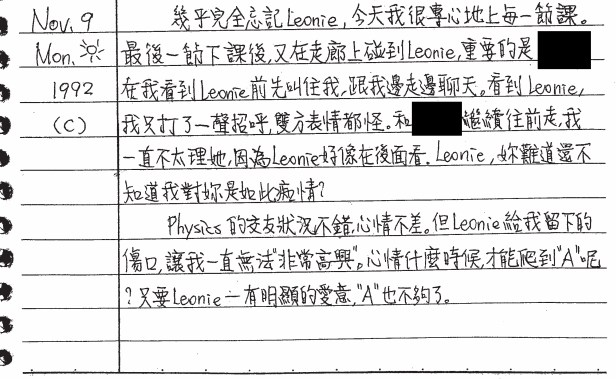 Nov. 9 幾乎完全忘記Leonie, 今天我很專心地上每一節課。
Mon. 最後一節下課後, 又在走廊上碰到Leonie, 重要的是
1992 在我看到Leonie前先叫住我, 跟我邊走邊聊天。看到Leonie,
(C) 我只打了一聲招呼, 雙方表情都怪。和 繼續往前走, 我
一直不太理她, 因為Leonie好像在後面看. Leonie, 妳難道還不
知道我對妳是如此癡情?
Physics 的交友狀況不錯, 心情不差。但Leonie給我留下的
傷口, 讓我一直無法"非常高興"。心情什麼時候, 才能爬到"A"呢
? 只要Leonie 一有明顯的愛意, "A"也不夠了。